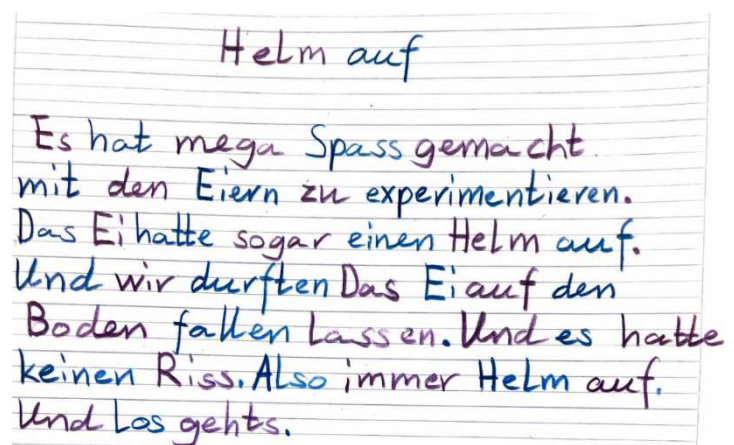 Helm auf
Es hat mega Spass gemacht
mit den Eiern zu experimentieren.
Das Ei hatte sogar einen Helm auf.
Und wir durften Das Ei auf den
Boden fallen Lassen. Und es hatte
keinen Riss. Also immer Helm auf.
Und Los gehts.